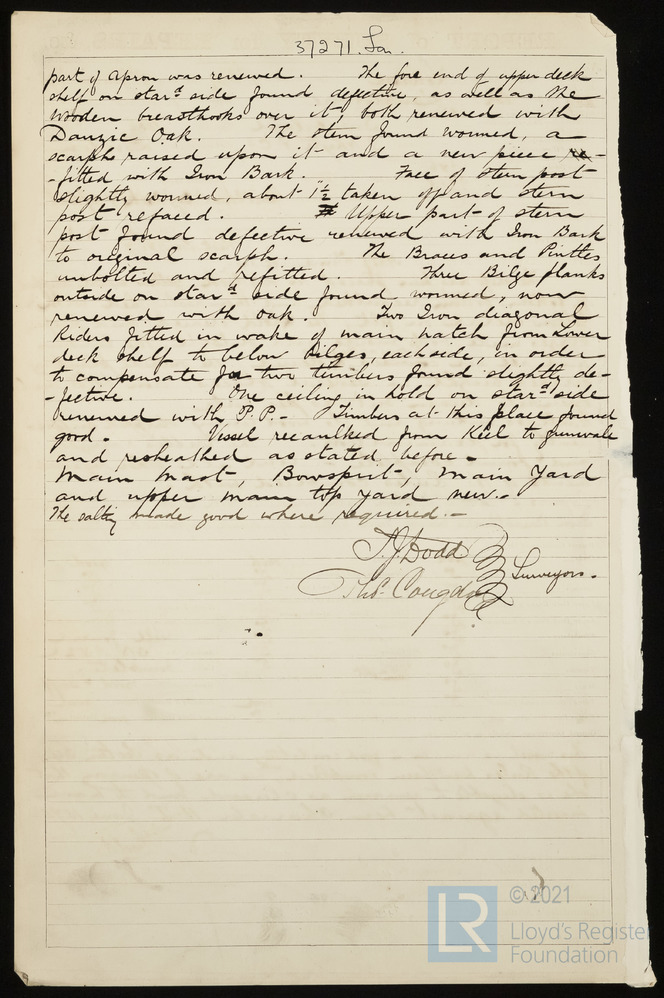 37271. Lon.
part of apron was renewed. The fore end of upper deck
shelf on starᵈ side found defective, as well as the
wooden breasthooks over it, both renewed with
Danzic Oak. The stem found wormed, a
scarph raised upon it and a new piece re-
-fitted with Iron Bark. Face of stern post
slightly wormed, about 1½" taken off and stern
post refaced. Upper part of stern
post found defective renewed with Iron Bark
to original scarph. The Braces and Pintles
unbolted and refitted. Three Bilge planks
outside on starᵈ side found wormed, now
renewed with oak. Two Iron diagonal
Riders fitted in wake of main hatch from Lower
deck shelf to below Bilges, each side, in order
to compensate for two timbers found slightly de-
-fective. One ceiling in hold on starᵈ side
renewed with P.P. - Timbers at this place found
good. Vessel recaulked from Keel to gunwale
and resheathed as stated before.
Main Mast, Bowsprit, Main Yard
and upper main top yard new. -
The salting made good where required. -
T. J. Dodd
Surveyors.
Thoˢ. Congdon
© 2021
LR
Lloyd's Register
Foundation